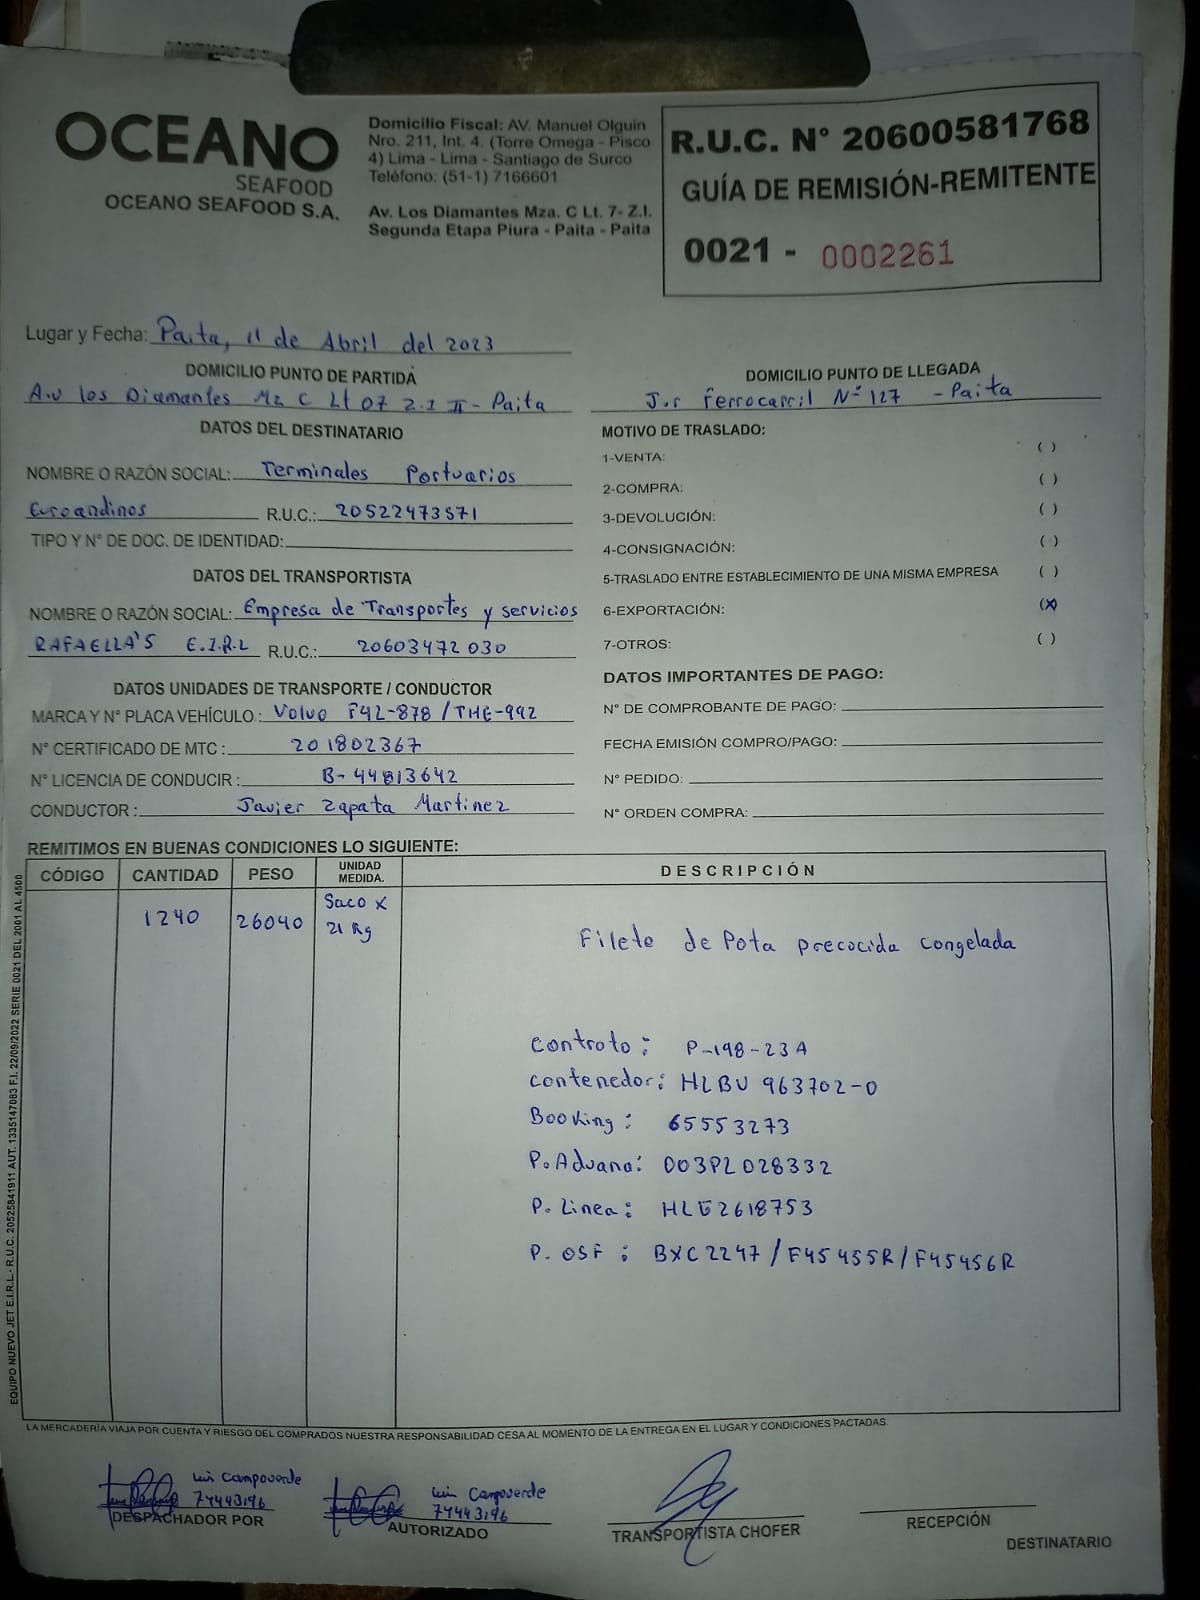 OCEANO
SEAFOOD
OCEANO SEAFOOD S.A.
Domicilio Fiscal: AV. Manuel Olguin
Nro. 211, Int. 4. (Torre Omega - Pisco
4) Lima - Lima - Santiago de Surco
Teléfono: (51-1) 7166601
Av. Los Diamantes Mza. C Lt. 7- Z.I.
Segunda Etapa Piura - Paita - Paita
R.U.C. N° 20600581768
GUÍA DE REMISIÓN-REMITENTE
0021 - 0002261
Lugar y Fecha: Paita, 11 de Abril del 2023
DOMICILIO PUNTO DE PARTIDA
A.v los Diamantes Mz C Lt 07 Z.I II - Paita
DOMICILIO PUNTO DE LLEGADA
J.r Ferrocarril N° 127 - Paita
DATOS DEL DESTINATARIO
NOMBRE O RAZÓN SOCIAL: Terminales Portuarios
Euroandinos R.U.C.: 20522473571
TIPO Y N° DE DOC. DE IDENTIDAD:
DATOS DEL TRANSPORTISTA
NOMBRE O RAZÓN SOCIAL: Empresa de Transportes y servicios
RAFAELLA'S E.I.R.L R.U.C.: 20603472030
DATOS UNIDADES DE TRANSPORTE / CONDUCTOR
MARCA Y N° PLACA VEHÍCULO : Volvo F4L-878 / THE-992
N° CERTIFICADO DE MTC : 201802367
N° LICENCIA DE CONDUCIR : B-44813642
CONDUCTOR : Javier Zapata Martinez
MOTIVO DE TRASLADO:
1-VENTA: ( )
2-COMPRA: ( )
3-DEVOLUCIÓN: ( )
4-CONSIGNACIÓN: ( )
5-TRASLADO ENTRE ESTABLECIMIENTO DE UNA MISMA EMPRESA ( )
6-EXPORTACIÓN: (X)
7-OTROS: ( )
DATOS IMPORTANTES DE PAGO:
N° DE COMPROBANTE DE PAGO:
FECHA EMISIÓN COMPRO/PAGO:
N° PEDIDO:
N° ORDEN COMPRA:
REMITIMOS EN BUENAS CONDICIONES LO SIGUIENTE:
CÓDIGO CANTIDAD PESO UNIDAD MEDIDA. DESCRIPCIÓN
1240 26040 Saco x
21 Kg
Filete de Pota precocida congelada
Contrato: P-198-23A
Contenedor: HLBU 963702-0
Booking: 65553273
P. Aduana: 003PL028332
P. Linea: HLE2618753
P. OSF : BXC2247/F45455R/F45456R
EQUIPO NUEVO JET E.I.R.L- R.U.C. 20525841911 AUT. 1335147083 F.I. 22/09/2022 SERIE 0021 DEL 2001 AL 4500
LA MERCADERÍA VIAJA POR CUENTA Y RIESGO DEL COMPRADOS NUESTRA RESPONSABILIDAD CESA AL MOMENTO DE LA ENTREGA EN EL LUGAR Y CONDICIONES PACTADAS.
Luis Campoverde
74443196
DESPACHADOR POR
Luis Campoverde
74443196
AUTORIZADO
TRANSPORTISTA CHOFER
RECEPCIÓN
DESTINATARIO